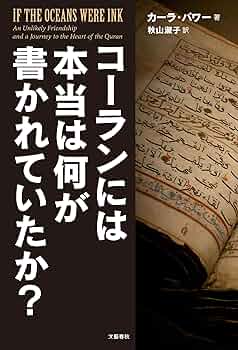 IF THE OCEANS WERE INK
An Unlikely Friendship
and a Journey to the Heart of the Quran
カーラ・パワー 著
秋山淑子 訳
コーランには
本当は何が
書かれていたか?
文藝春秋